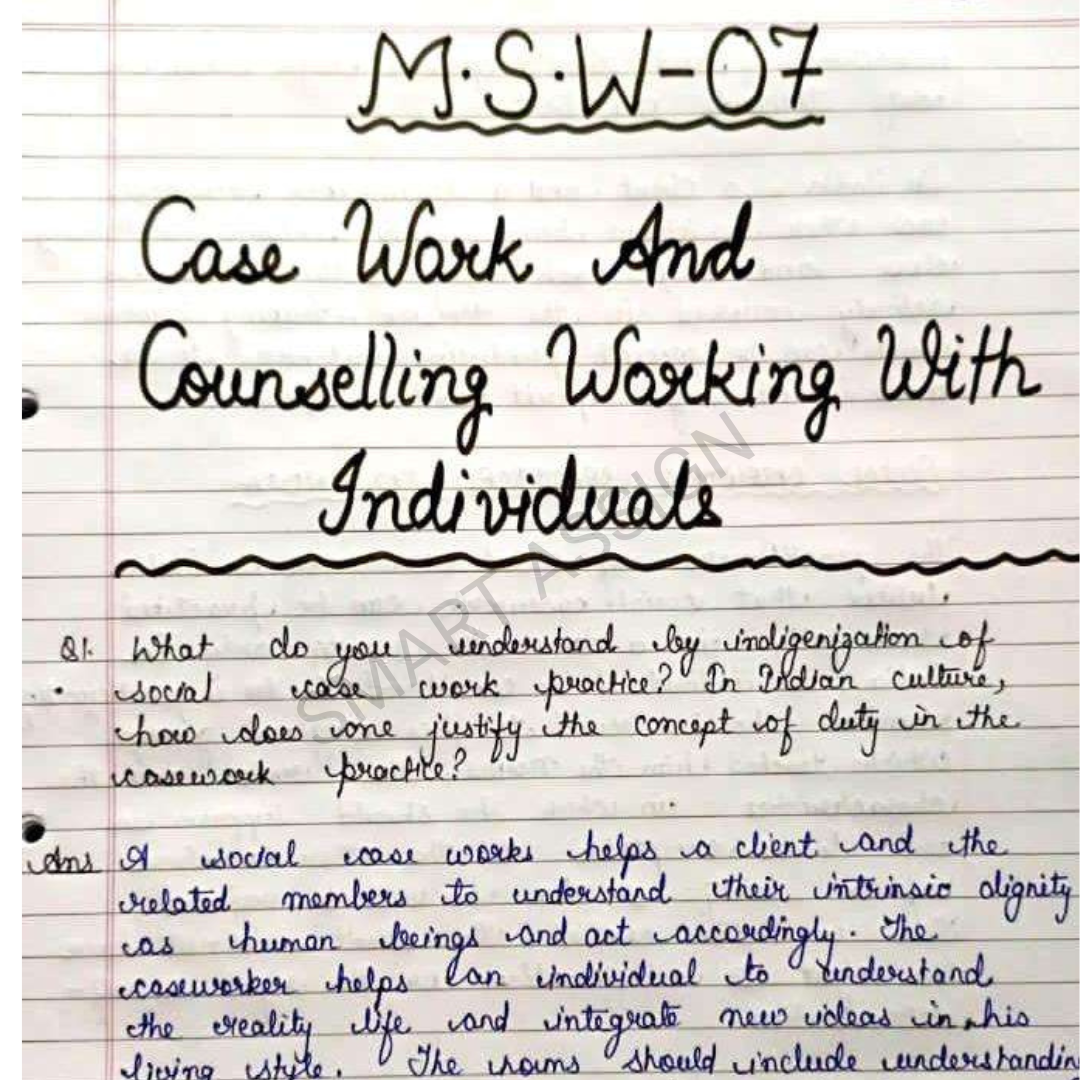 M.S.W-07
Case Work And
Counselling Working With
Individuals
SMART ASSIGN
Q1. What do you understand by indigenization of
social case work practice? In Indian culture,
how does one justify the concept of duty in the
casework practice?
Ans A social case works helps a client and the
related members to understand their intrinsic dignity
as human beings and act accordingly. The
caseworker helps an individual to understand
the reality life and integrate new ideas in his
living style. The should include understanding